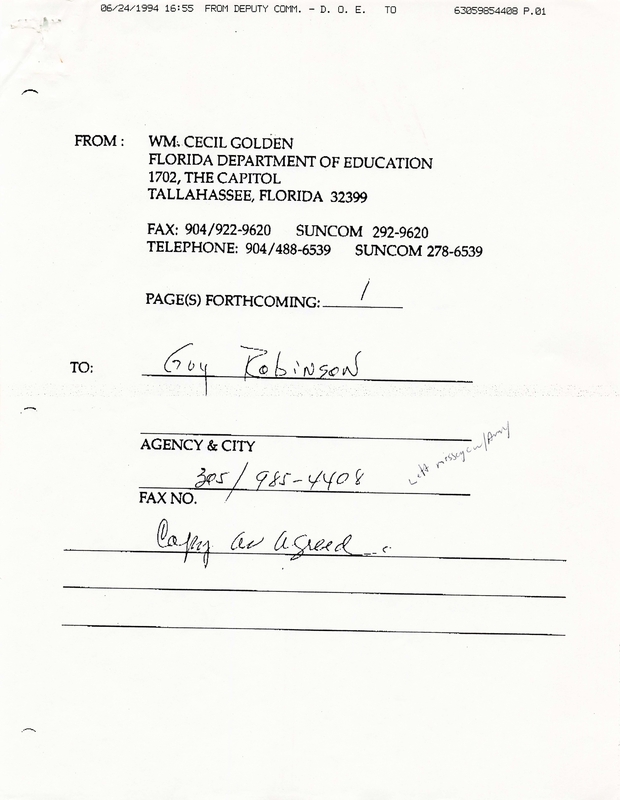 06/24/1994 16:55 FROM DEPUTY COMM. - D. O. E. TO 63059854408 P.01
FROM: WM. CECIL GOLDEN
FLORIDA DEPARTMENT OF EDUCATION
1702, THE CAPITOL
TALLAHASSEE, FLORIDA 32399
FAX: 904/922-9620 SUNCOM 292-9620
TELEPHONE: 904/488-6539 SUNCOM 278-6539
PAGE(S) FORTHCOMING: 1
TO: Guy Robinson
AGENCY & CITY
Left message w/Amy
305/985-4408
FAX NO.
Copy as agreed...